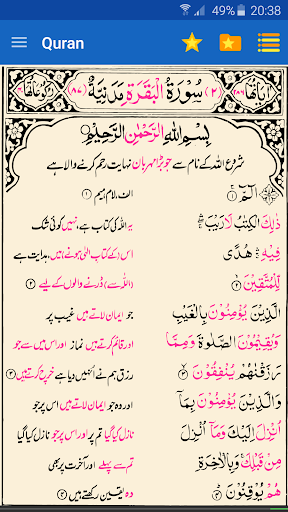 49% 20:38
Quran
اٰیَاتُهَا ٢٨٦ (٢) سُوْرَةُ الْبَقَرَةِ مَدَنِيَّةٌ (٨٧)
بِسْمِ اللّٰهِ الرَّحْمٰنِ الرَّحِيْمِ
شروع اللہ کے نام سے جو بڑا مہربان نہایت رحم کرنے والا ہے
الٓمّٓ ۚ ﴿۱﴾
ذٰلِكَ الْكِتٰبُ لَا رَيْبَ ۛۖ
فِيْهِ ۛۚ هُدًى
لِّلْمُتَّقِيْنَ ۙ ﴿۲﴾
الَّذِيْنَ يُؤْمِنُوْنَ بِالْغَيْبِ
وَيُقِيْمُوْنَ الصَّلٰوةَ وَمِمَّا
رَزَقْنٰهُمْ يُنْفِقُوْنَ ۙ ﴿۳﴾
وَالَّذِيْنَ يُؤْمِنُوْنَ بِمَآ
اُنْزِلَ اِلَيْكَ وَمَآ اُنْزِلَ
مِنْ قَبْلِكَ ۚ وَبِالْاٰخِرَةِ
هُمْ يُوْقِنُوْنَ ؕ ﴿۴﴾
الف، لام، میم ﴿۱﴾
یہ اللہ کی کتاب ہے، نہیں کوئی شک
اس (کے کتاب الٰہی ہونے) میں، ہدایت ہے
(اللہ سے) ڈرنے والوں کے لیے ﴿۲﴾
جو ایمان لاتے ہیں غیب پر
اور قائم کرتے ہیں نماز اور اس میں سے جو
رزق ہم نے انہیں دیا ہے خرچ کرتے ہیں ﴿۳﴾
اور وہ جو ایمان لاتے ہیں اس پر جو
نازل کیا گیا تم پر اور اس پر جو نازل کیا گیا
تم سے پہلے اور آخرت پر بھی
وہ یقین رکھتے ہیں ﴿۴﴾